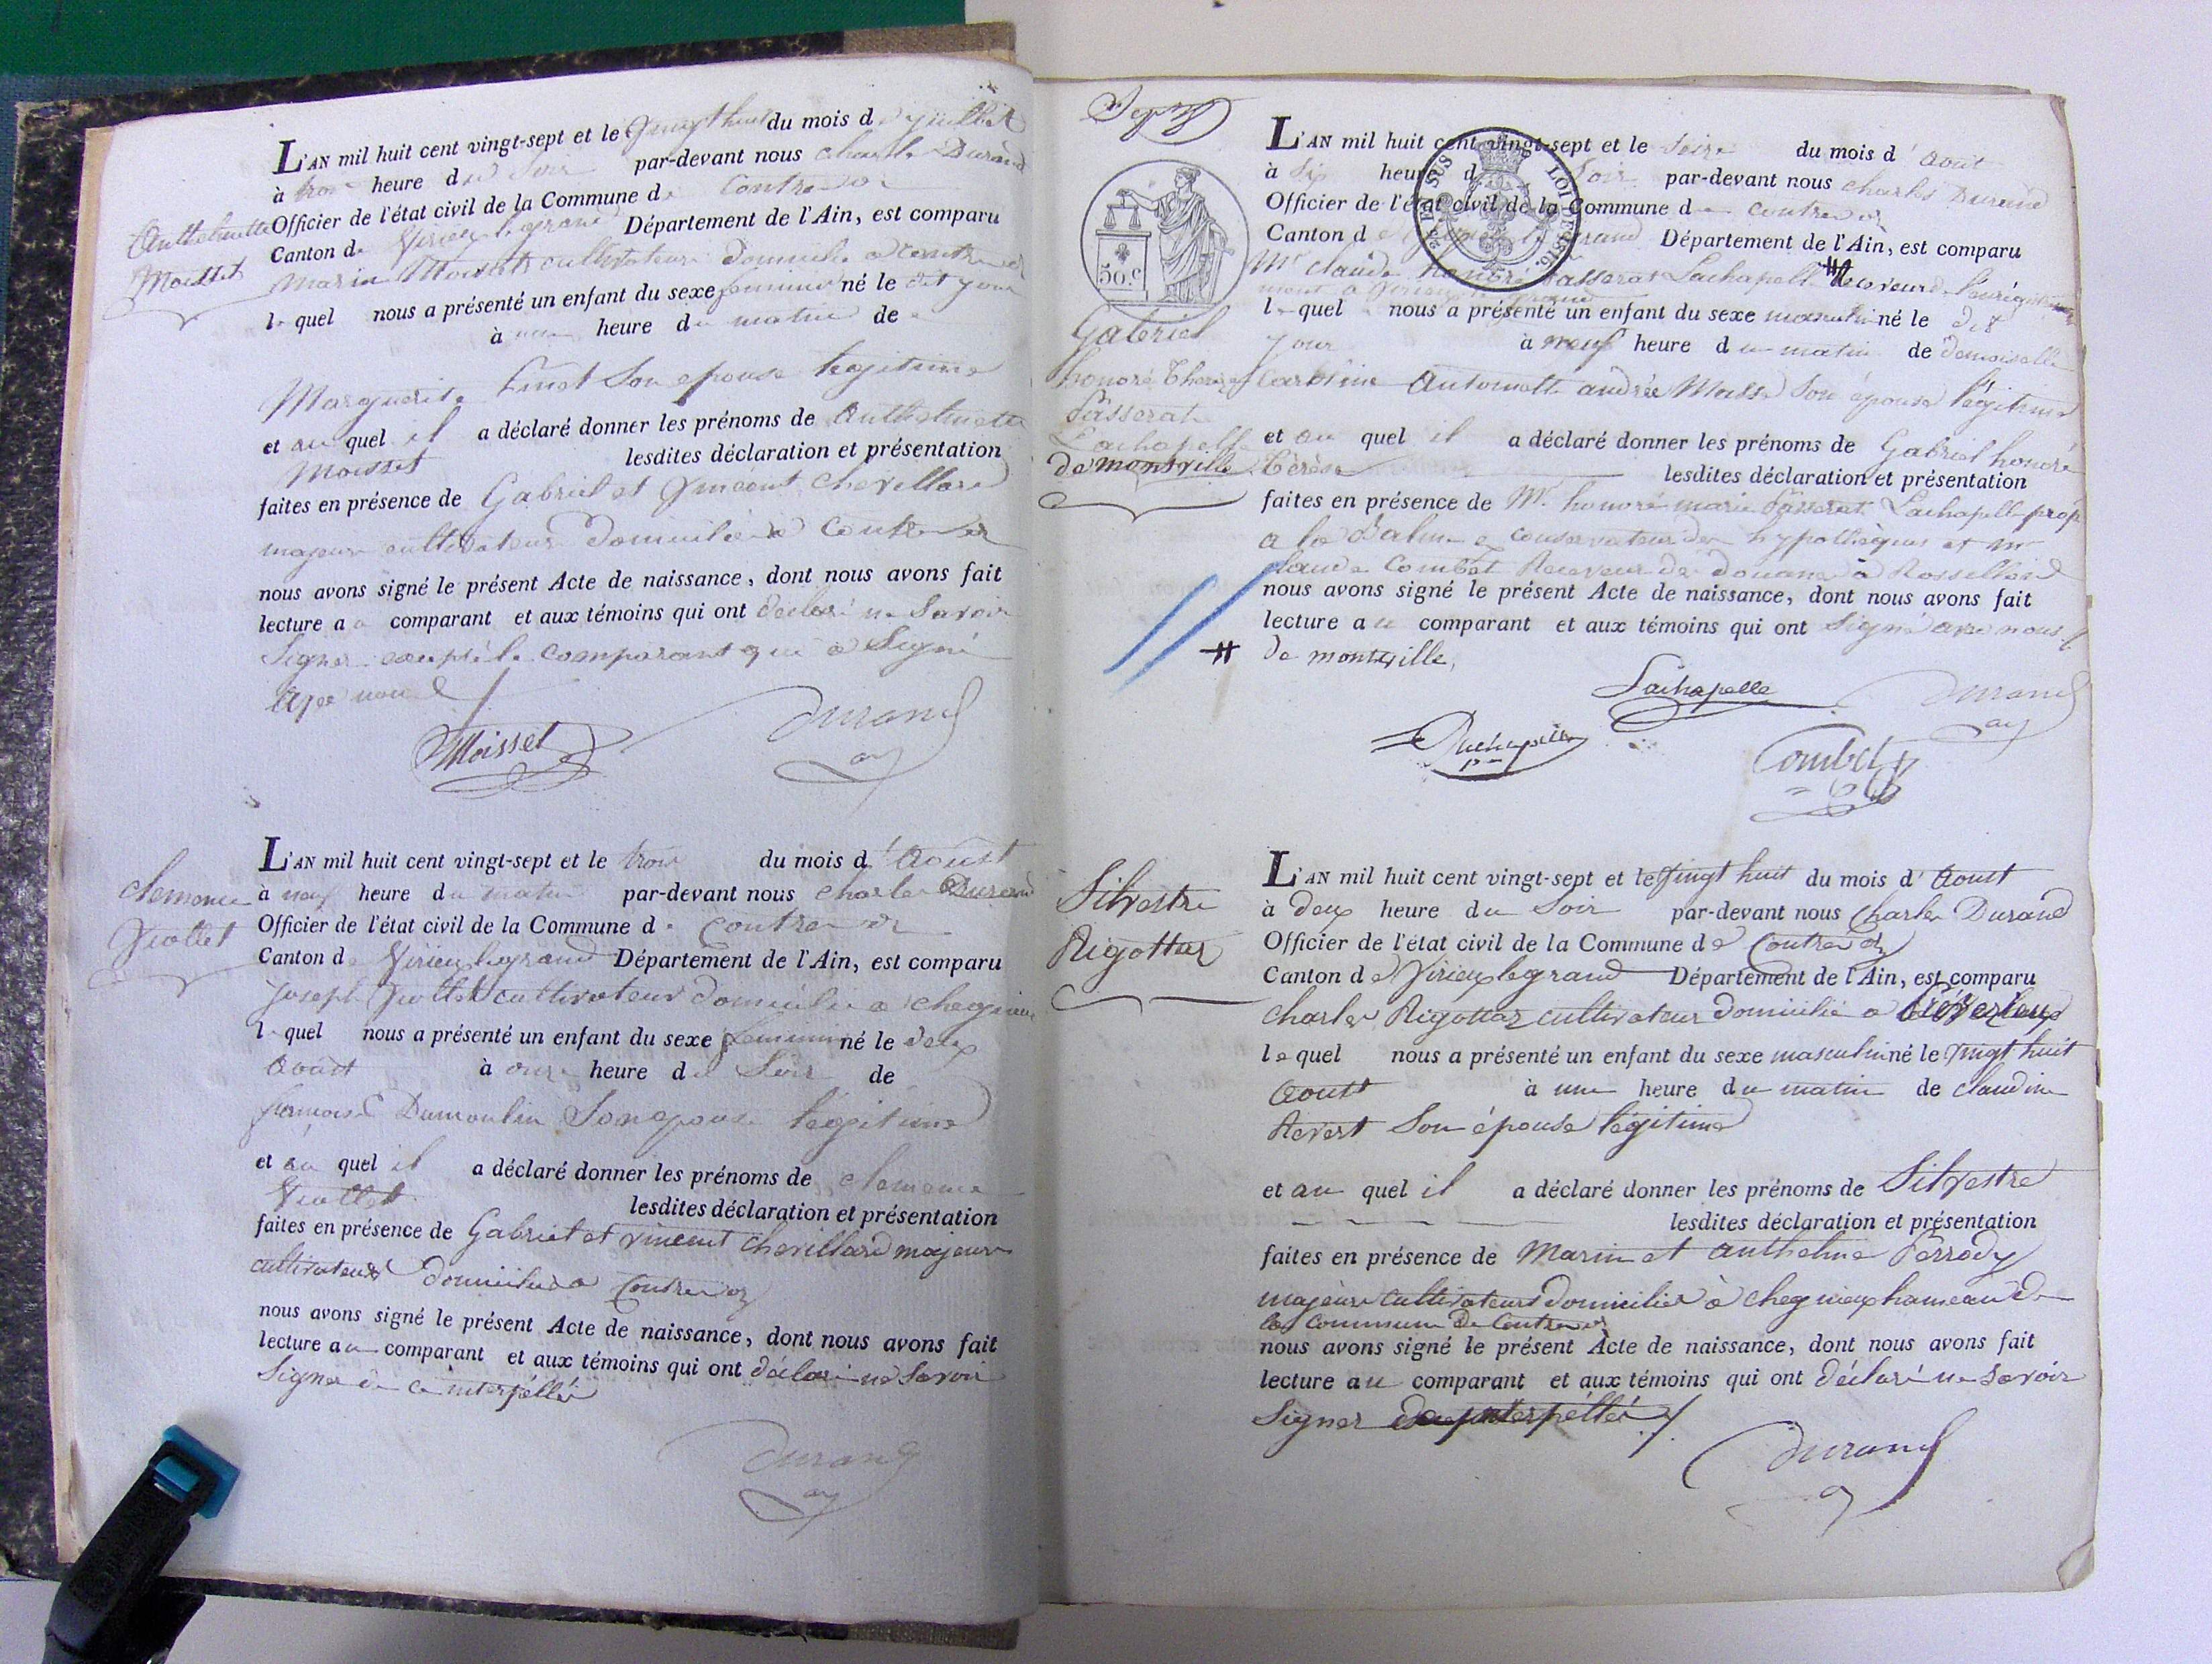 L'AN mil huit cent vingt-sept et le vingt huit du mois de juillet
à trois heure du soir par-devant nous charle Durand
Officier de l'état civil de la Commune de Contrevoz
Canton de Virieux legrand Département de l'Ain, est comparu
Marin Moisset cultivateur domicilié a contrevoz
le quel nous a présenté un enfant du sexe feminin né le dit jour
à une heure du matin de
Marguerite Son epouse legitime
et au quel il a déclaré donner les prénoms de Anthelmette
Moisset lesdites déclaration et présentation
faites en présence de Gabriel et Vincent Chevillard
majeurs cultivateurs domiciliés a Contrevoz
nous avons signé le présent Acte de naissance, dont nous avons fait
lecture au comparant et aux témoins qui ont déclaré ne Savoir
Signer excepté le comparant qui a Signé
avec nous
Moisset Durand
Anthelmette
Moisset
L'AN mil huit cent vingt-sept et le trois du mois d'Aoust
à neuf heure du matin par-devant nous charle Durand
Officier de l'état civil de la Commune de Contrevoz
Canton de Virieux legrand Département de l'Ain, est comparu
joseph Viollet cultivateur domicilié a chegnieux
le quel nous a présenté un enfant du sexe feminin né le deux
Aoust à onze heure du Soir de
françoise Dumoulin Son epouse légitime
et au quel il a déclaré donner les prénoms de clemence
Viollet lesdites déclaration et présentation
faites en présence de Gabriel et vincent chevillard majeurs
cultivateurs domiciliés a Contrevoz
nous avons signé le présent Acte de naissance, dont nous avons fait
lecture au comparant et aux témoins qui ont déclaré ne Savoir
Signer de ce interpéllés
Durand
clemence
Viollet
L'AN mil huit cent vingt-sept et le seize du mois d'Aout
à Six heure du Soir par-devant nous charles Durand
Officier de l'état civil de la Commune de contrevoz
Canton de Virieux le grand Département de l'Ain, est comparu
Mr claude honoré Passerat Lachapelle # Receveur de l'enrégistre
ment a Virieux le grand
le quel nous a présenté un enfant du sexe masculin né le dit
jour à neuf heure du matin de demoiselle
Caroline Antoinette andrée Son épouse légitime
et au quel il a déclaré donner les prénoms de Gabriel honoré
Térèse lesdites déclaration et présentation
faites en présence de Mr. honoré marie Passerat Lachapelle prop.
a la Balme conservateur des hypothèques et mr
Claude Combet Receveur de douane à Rossillon
nous avons signé le présent Acte de naissance, dont nous avons fait
lecture au comparant et aux témoins qui ont Signé avec nous
# De montville,
Lachapelle Durand
Combet
50.c
Gabriel
honoré Therèse
Passerat
Lachapelle
De montville
L'AN mil huit cent vingt-sept et le Vingt huit du mois d'Aoust
à deux heure du Soir par-devant nous Charles Durand
Officier de l'état civil de la Commune de Contrevoz
Canton de Virieux legrand Département de l'Ain, est comparu
charles Rigottaz cultivateur domicilié a
le quel nous a présenté un enfant du sexe masculin né le Vingt huit
Aoust à une heure du matin de claudine
Revert Son épouse légitime
et au quel il a déclaré donner les prénoms de Silvestre
lesdites déclaration et présentation
faites en présence de Marin et Anthelme Perrody
majeurs cultivateurs domiciliés à chegnieux hameau de
la commune de Contrevoz
nous avons signé le présent Acte de naissance, dont nous avons fait
lecture au comparant et aux témoins qui ont déclaré ne Savoir
Signer
Durand
Silvestre
Rigottaz